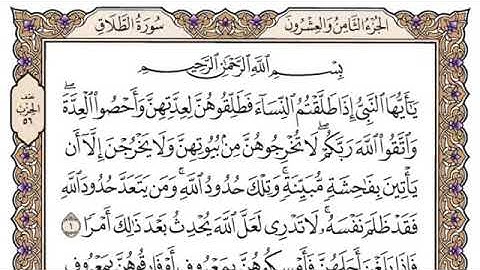 الجزء الثامن والعشرون
سورة الطلاق
نصف
الحزب
٥٦
بِسْمِ اللَّهِ الرَّحْمَٰنِ الرَّحِيمِ
يَٰٓأَيُّهَا ٱلنَّبِىُّ إِذَا طَلَّقْتُمُ ٱلنِّسَآءَ فَطَلِّقُوهُنَّ لِعِدَّتِهِنَّ وَأَحْصُوا۟ ٱلْعِدَّةَ ۖ
وَٱتَّقُوا۟ ٱللَّهَ رَبَّكُمْ ۖ لَا تُخْرِجُوهُنَّ مِنۢ بُيُوتِهِنَّ وَلَا يَخْرُجْنَ إِلَّآ أَن
يَأْتِينَ بِفَٰحِشَةٍ مُّبَيِّنَةٍ ۚ وَتِلْكَ حُدُودُ ٱللَّهِ ۚ وَمَن يَتَعَدَّ حُدُودَ ٱللَّهِ
فَقَدْ ظَلَمَ نَفْسَهُۥ ۚ لَا تَدْرِى لَعَلَّ ٱللَّهَ يُحْدِثُ بَعْدَ ذَٰلِكَ أَمْرًا ١
فَإِذَا بَلَغْنَ أَجَلَهُنَّ فَأَمْسِكُوهُنَّ بِمَعْرُوفٍ أَوْ فَارِقُوهُنَّ بِمَعْرُوفٍ